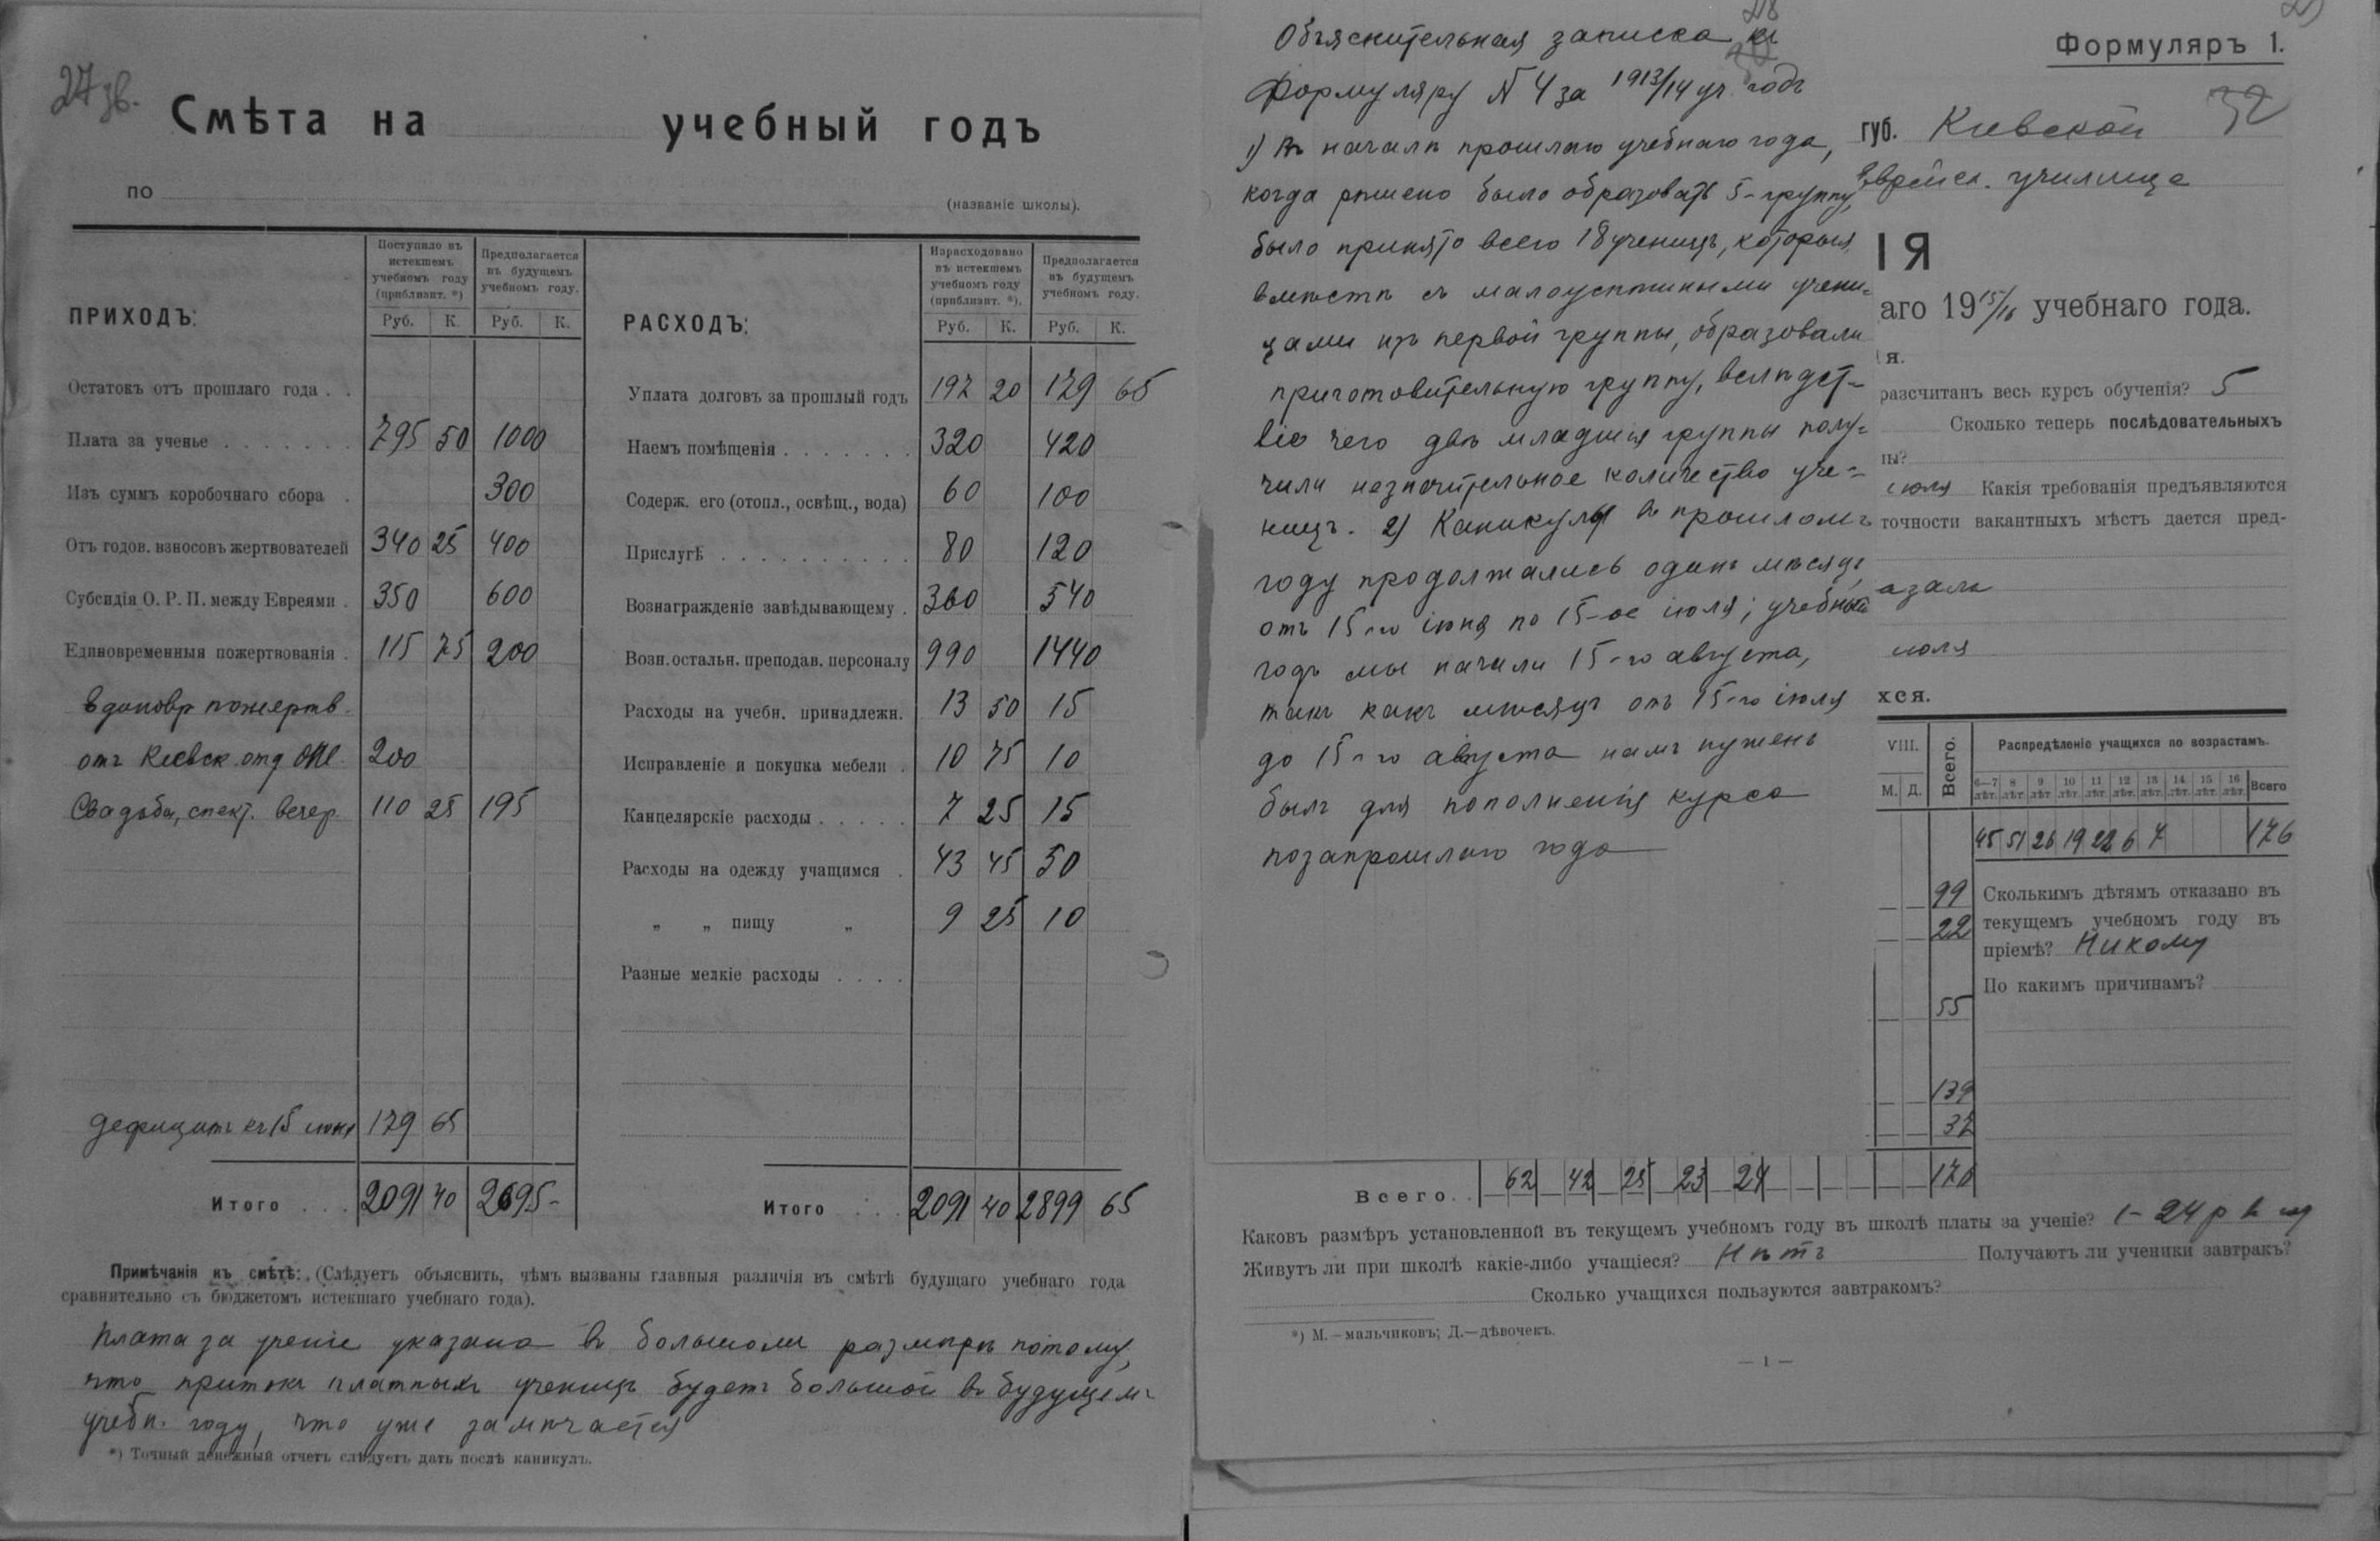 27 зв.
Смѣта на учебный годъ
по
(названіе школы).
ПРИХОДЪ:
Поступило въ истекшемъ учебномъ году (приблизит. *)
Предполагается въ будущемъ учебномъ году.
Руб. К. Руб. К.
Остатокъ отъ прошлаго года . .
Плата за ученье . . . . . . . 795 50 1000
Изъ суммъ коробочнаго сбора . 300
Отъ годов. взносовъ жертвователей 340 25 400
Субсидія О. Р. П. между Евреями . 350 600
Единовременныя пожертвованія . 115 75 200
Единовр пожертв.
отъ Кіевск. отд ОПЕ. 200
Свадьбы, спект. вечер. 110 25 195
Дефицитъ къ 15 іюня 179 65
Итого . . . 2091 40 2695-
РАСХОДЪ:
Израсходовано въ истекшемъ учебномъ году (приблизит. *).
Предполагается въ будущемъ учебномъ году.
Руб. К. Руб. К.
Уплата долговъ за прошлый годъ 197 20 179 65
Наемъ помѣщенія . . . . . . . 320 420
Содерж. его (отопл., освѣщ., вода) 60 100
Прислугѣ . . . . . . . . . . 80 120
Вознагражденіе завѣдывающему . 360 540
Возн. остальн. преподав. персоналу 990 1440
Расходы на учебн. принадлежн. 13 50 15
Исправленіе и покупка мебели . 10 75 10
Канцелярскіе расходы . . . . . 7 25 15
Расходы на одежду учащимся . 43 45 50
„ „ пищу „ 9 25 10
Разные мелкіе расходы . . . .
Итого . . . 2091 40 2899 65
Примѣчанія къ смѣтѣ: (Слѣдуетъ объяснить, чѣмъ вызваны главныя различія въ смѣтѣ будущаго учебнаго года
сравнительно съ бюджетомъ истекшаго учебнаго года).
Плата за ученіе указана въ большомъ размѣрѣ потому,
что притокъ платныхъ ученицъ будетъ большой въ будущемъ
учебн. году, что уже замѣчается
*) Точный денежный отчетъ слѣдуетъ дать послѣ каникулъ.
28
Объяснительная записка къ
Формуляру N 4 за 1913/14 уч. годъ
1) Въ началѣ прошлаго учебнаго года,
когда рѣшено было образовать 5-группу,
было принято всего 18 ученицъ, которыя
вмѣстѣ съ малоуспѣшными учени-
цами изъ первой группы, образовали
приготовительную группу, вслѣдст-
віе чего двѣ младшія группы полу-
чили незначительное количество уче-
ницъ. 2) Каникулы въ прошломъ
году продолжались одинъ мѣсяцъ,
отъ 15-го іюня по 15-ое іюля; учебный
годъ мы начали 15-го августа,
такъ какъ мѣсяцъ отъ 15-го іюля
до 15-го августа намъ нуженъ
былъ для пополненія курса
позапрошлаго года
Формуляръ 1.
32
губ. Кіевской
Еврейск. училище
ІЯ
аго 1915/16 учебнаго года.
я.
разсчитанъ весь курсъ обученія? 5
Сколько теперь послѣдовательныхъ
ны?
іюля Какія требованія предъявляются
точности вакантныхъ мѣстъ дается пред-
азала
іюля
хся.
VIII. Всего. Распредѣленіе учащихся по возрастамъ.
М. Д. 6—7 лѣт. 8 лѣт. 9 лѣт. 10 лѣт. 11 лѣт. 12 лѣт. 13 лѣт. 14 лѣт. 15 лѣт. 16 лѣт. Всего
45 51 26 19 22 6 7 176
99 Сколькимъ дѣтямъ отказано въ
22 текущемъ учебномъ году въ
пріемѣ? Никому
По какимъ причинамъ?
55
139
37
Всего. . 62 42 25 23 24 176
Каковъ размѣръ установленной въ текущемъ учебномъ году въ школѣ платы за ученіе? 1-24 р в
Живутъ ли при школѣ какіе-либо учащіеся? Нѣтъ Получаютъ ли ученики завтракъ?
Сколько учащихся пользуются завтракомъ?
*) М.—мальчиковъ; Д.—дѣвочекъ.
— 1 —